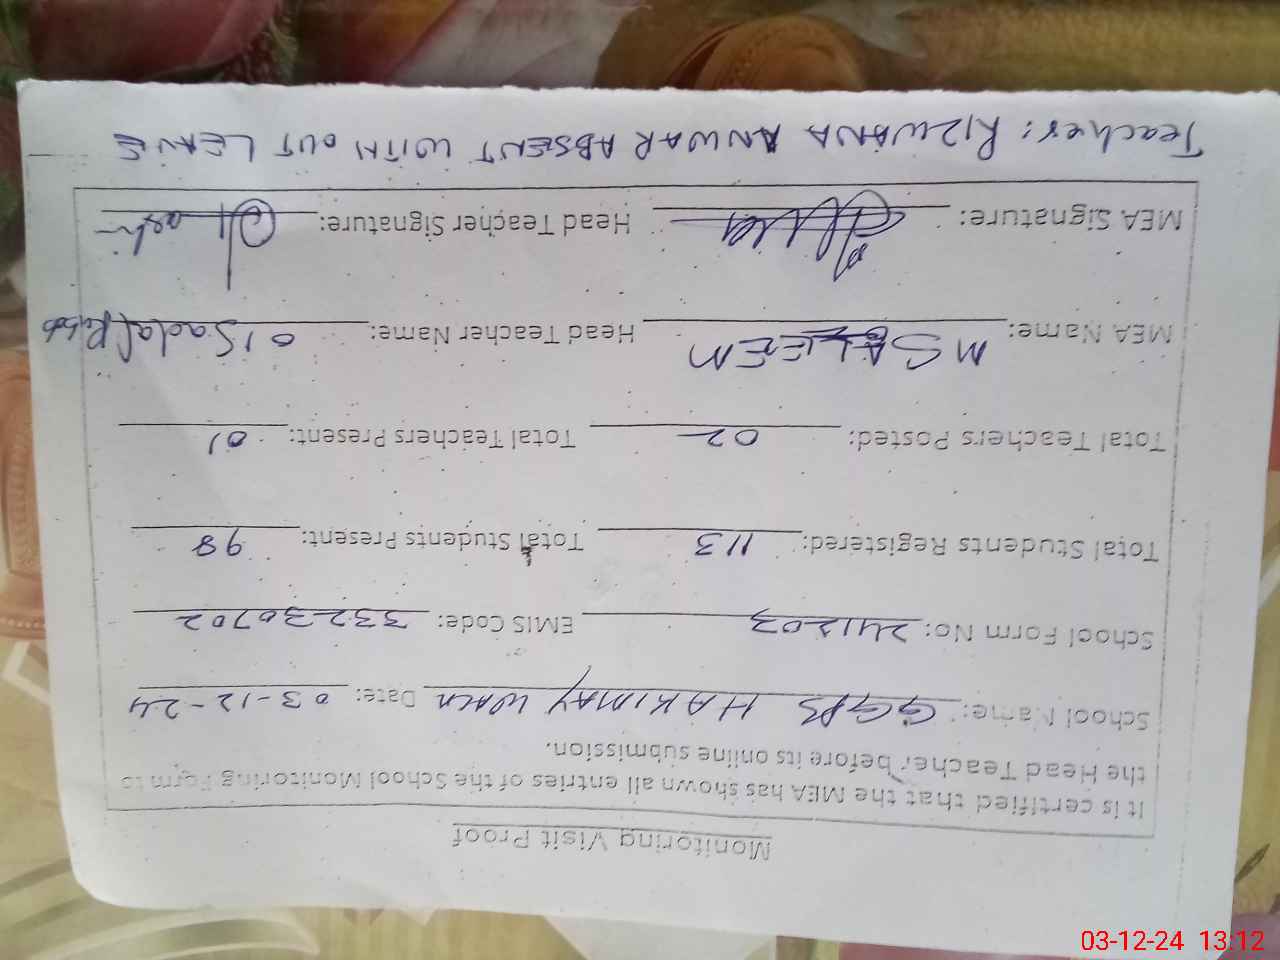 Monitoring Visit Proof
It is certified that the MEA has shown all entries of the School Monitoring Form to
the Head Teacher before its online submission.
School Name: GGPS HAKIMAY WALA Date: 03-12-24
School Form No: 2411203 EMIS Code: 33230702
Total Students Registered: 113 Total Students Present: 98
Total Teachers Posted: 02 Total Teachers Present: 01
MEA Name: M SALEEM Head Teacher Name: 01 Sadaf
MEA Signature: Head Teacher Signature:
Teacher: RIZWANA ANWAR ABSENT WITH OUT LEAVE
03-12-24 13:12